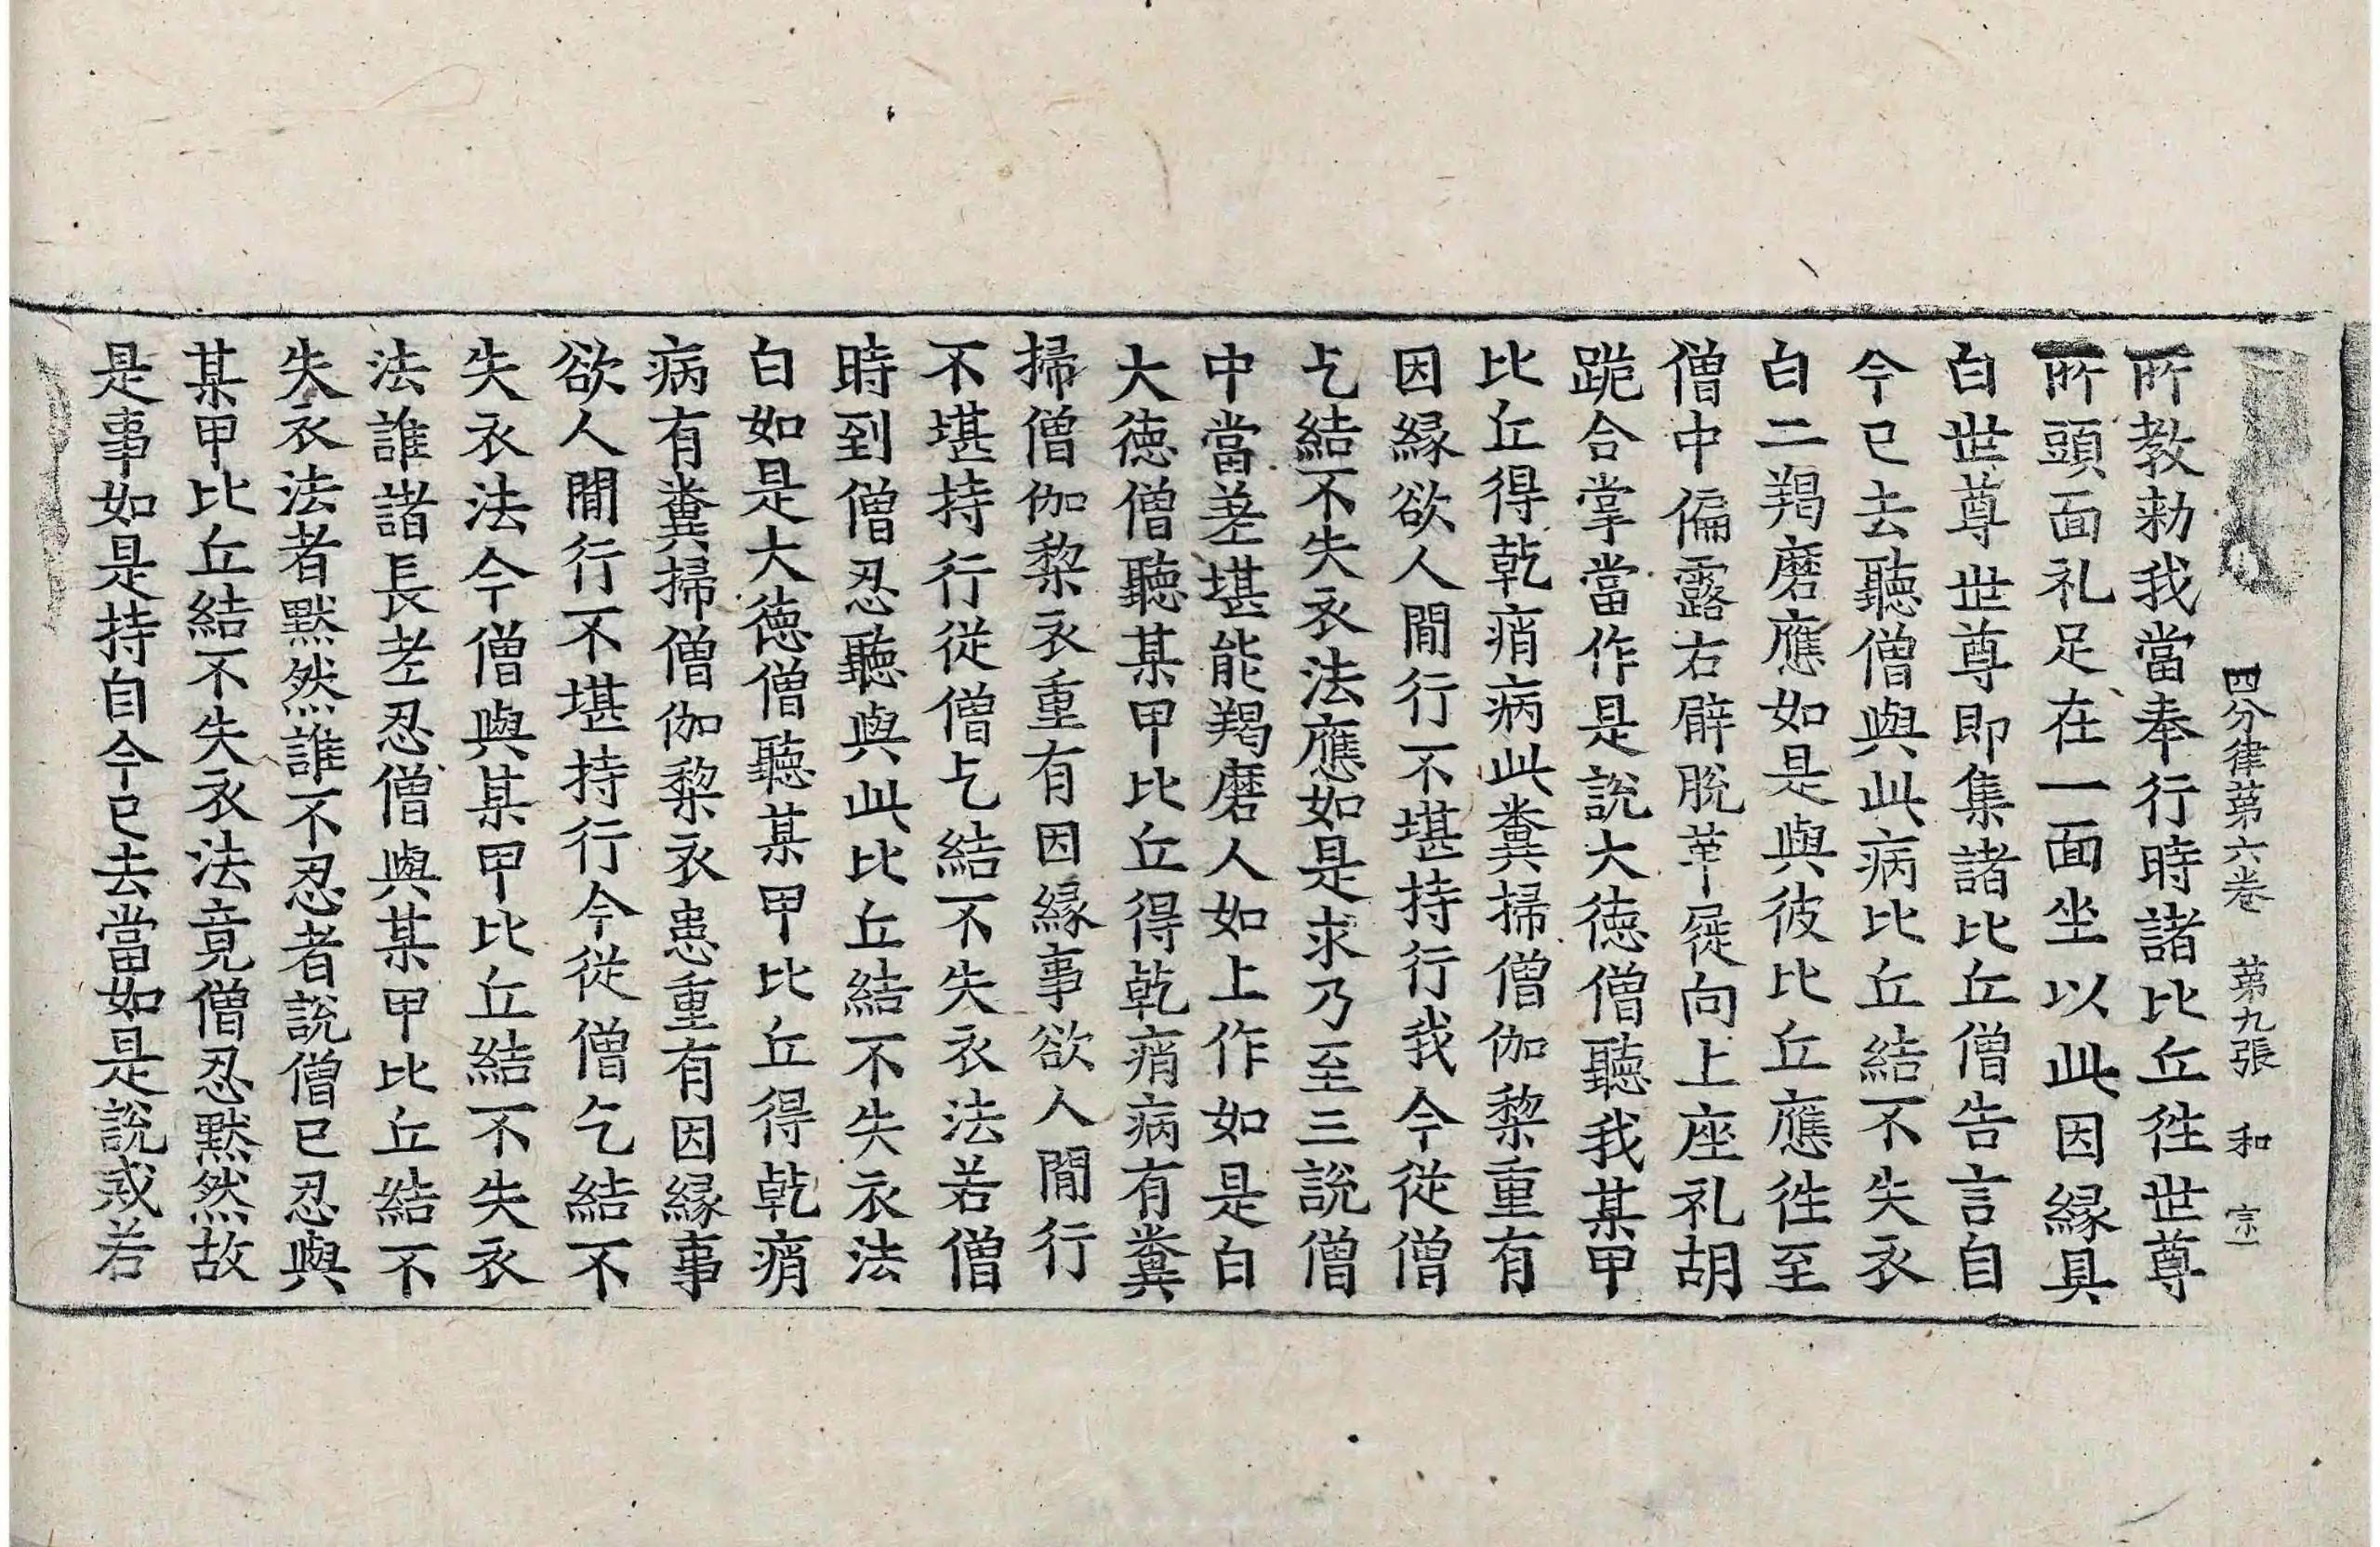 四分律第六卷 第九張 和 宗
所教勑我當奉行時諸比丘徃世尊
所頭面礼足在一面坐以此因縁具
白世尊世尊即集諸比丘僧告言自
今已去聽僧與此病比丘結不失衣
白二羯磨應如是與彼比丘應徃至
僧中偏露右臂脫革屣向上座礼胡
跪合掌當作是說大德僧聽我某甲
比丘得乾痟病此糞掃僧伽梨重有
因縁欲人間行不堪持行我今從僧
乞結不失衣法應如是求乃至三說僧
中當差堪能羯磨人如上作如是白
大德僧聽某甲比丘得乾痟病有糞
掃僧伽梨衣重有因縁事欲人間行
不堪持行從僧乞結不失衣法若僧
時到僧忍聽與此比丘結不失衣法
白如是大德僧聽某甲比丘得乾痟
病有糞掃僧伽梨衣患重有因縁事
欲人間行不堪持行今從僧乞結不
失衣法今僧與某甲比丘結不失衣
法誰諸長老忍僧與某甲比丘結不
失衣法者默然誰不忍者說僧已忍與
某甲比丘結不失衣法竟僧忍默然故
是事如是持自今已去當如是說戒若